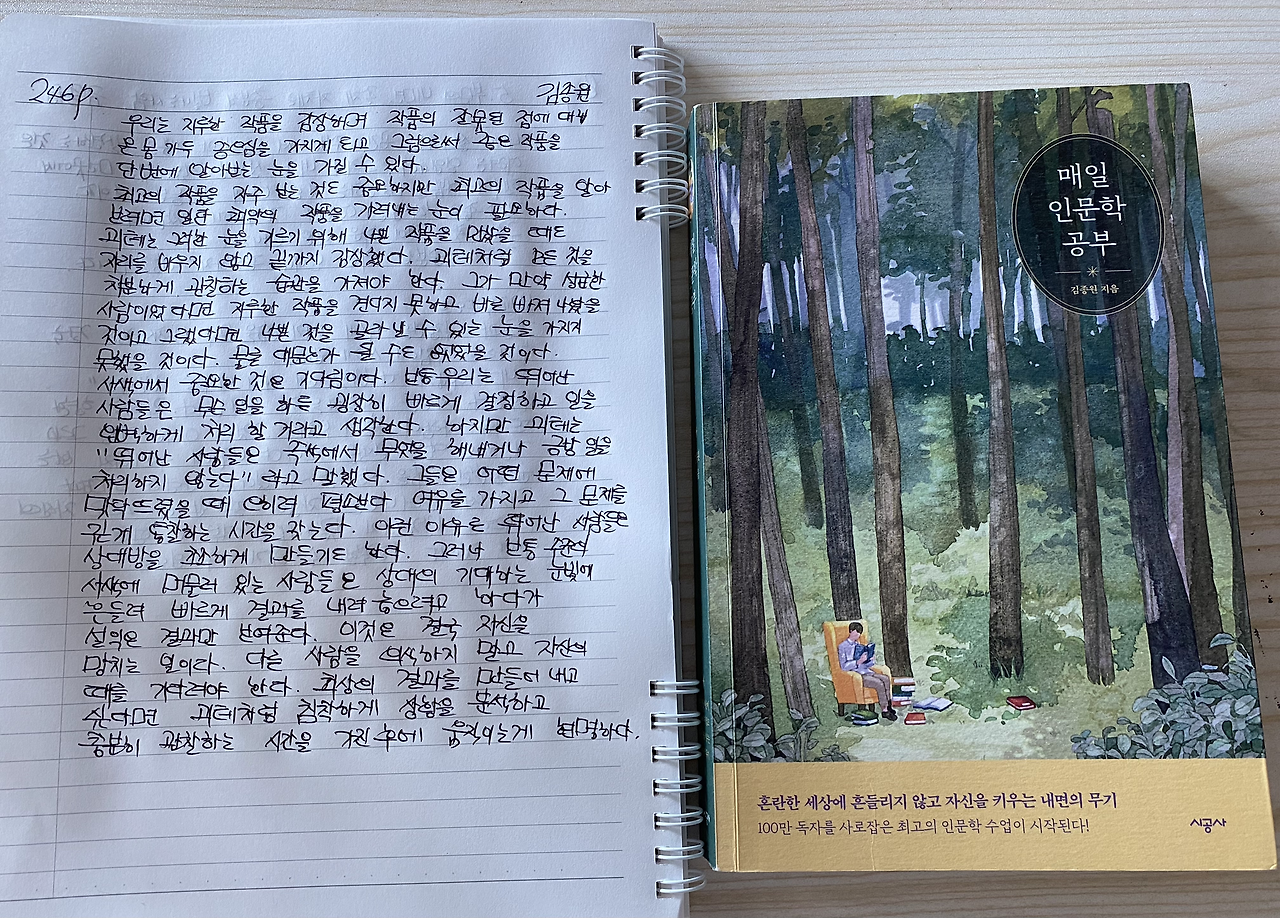 246p.
김종원
우리는 지루한 작품을 감상하며 작품의 잘못된 점에 대해
온몸 가득 공포심을 가지게 되고 그럼으로써 좋은 작품을
단번에 알아보는 눈을 가질 수 있다.
최고의 작품을 자주 보는 것도 중요하지만 최고의 작품을 알아
보려면 일단 최악의 작품을 가려내는 눈이 필요하다.
괴테는 그러한 눈을 기르기 위해 나쁜 작품을 만났을 때도
자리를 비우지 않고 끝까지 감상했다. 괴테처럼 모든 것을
차분하게 관찰하는 습관을 가져야 한다. 그가 만약 성급한
사람이었다면 지루한 작품을 견디지 못하고 바로 빠져나왔을
것이고 그랬다면 나쁜 것을 골라낼 수 있는 눈을 가지지
못했을 것이다. 물론 대문호가 될 수도 없었을 것이다.
사색에서 중요한 것은 기다림이다. 보통 우리는 뛰어난
사람들은 무슨 일을 하든 굉장히 빠르게 결정하고 일을
완벽하게 처리할 거라고 생각한다. 하지만 괴테는
"뛰어난 사람들은 즉석에서 무엇을 해내거나 금방 일을
처리하지 않는다" 라고 말했다. 그들은 어떤 문제에
맞닥뜨렸을 때 오히려 평소보다 여유를 가지고 그 문제를
깊게 통찰하는 시간을 갖는다. 이런 이유로 뛰어난 사람들은
상대방을 초조하게 만들기도 한다. 그러나 보통 수준의
사색에 머물러 있는 사람들은 상대의 기대하는 눈빛에
흔들려 빠르게 결과를 내려놓으려고 하다가
설익은 결과만 보여준다. 이것은 결국 자신을
망치는 일이다. 다른 사람을 의식하지 말고 자신의
때를 기다려야 한다. 최상의 결과를 만들어 내고
싶다면 괴테처럼 침착하게 상황을 분석하고
충분히 관찰하는 시간을 가진 후에 움직이는게 현명하다.
매일
인문학
공부
김종원 지음
혼란한 세상에 흔들리지 않고 자신을 키우는 내면의 무기
100만 독자를 사로잡은 최고의 인문학 수업이 시작된다!
시공사